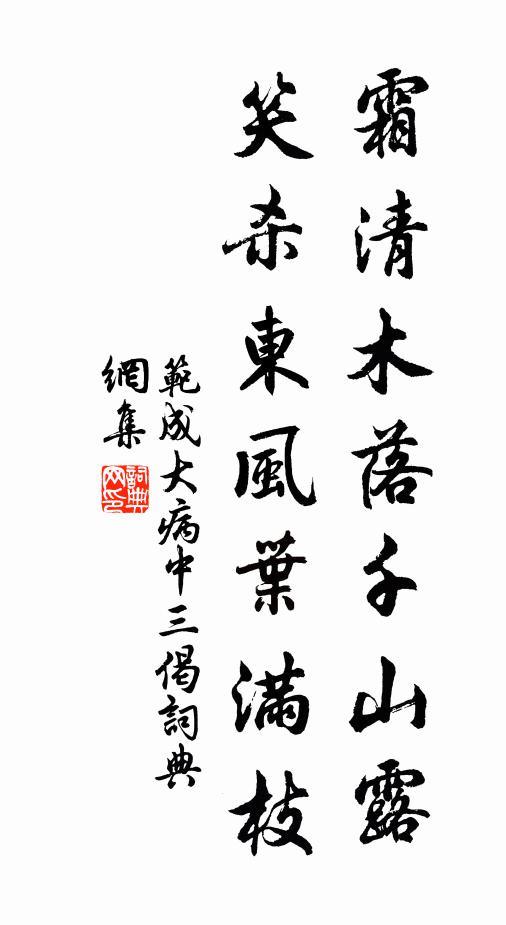 霜清木落千山露
笑杀東風葉满枝
範成大病中三偈詞典
網集
詞典
网印